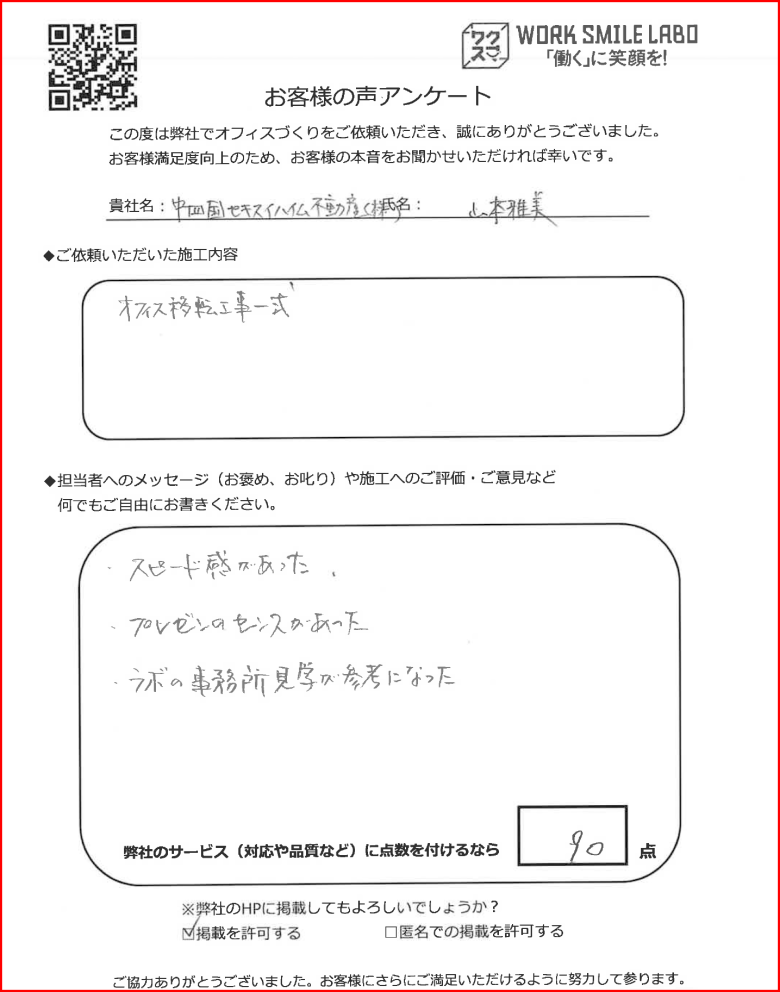 ワクスマ
WORK SMILE LABO
「働く」に笑顔を!
お客様の声アンケート
この度は弊社でオフィスづくりをご依頼いただき、誠にありがとうございました。
お客様満足度向上のため、お客様の本音をお聞かせいただければ幸いです。
貴社名：中四国セキスイハイム不動産(株) 氏名： 山本雅美
◆ご依頼いただいた施工内容
オフィス移転工事一式
◆担当者へのメッセージ（お褒め、お叱り）や施工へのご評価・ご意見など
何でもご自由にお書きください。
・スピード感があった、
・プレゼンのセンスがあった
・ラボの事務所見学が参考になった
弊社のサービス（対応や品質など）に点数を付けるなら 90 点
※弊社のHPに掲載してもよろしいでしょうか？
☑掲載を許可する □匿名での掲載を許可する
ご協力ありがとうございました。お客様にさらにご満足いただけるように努力して参ります。